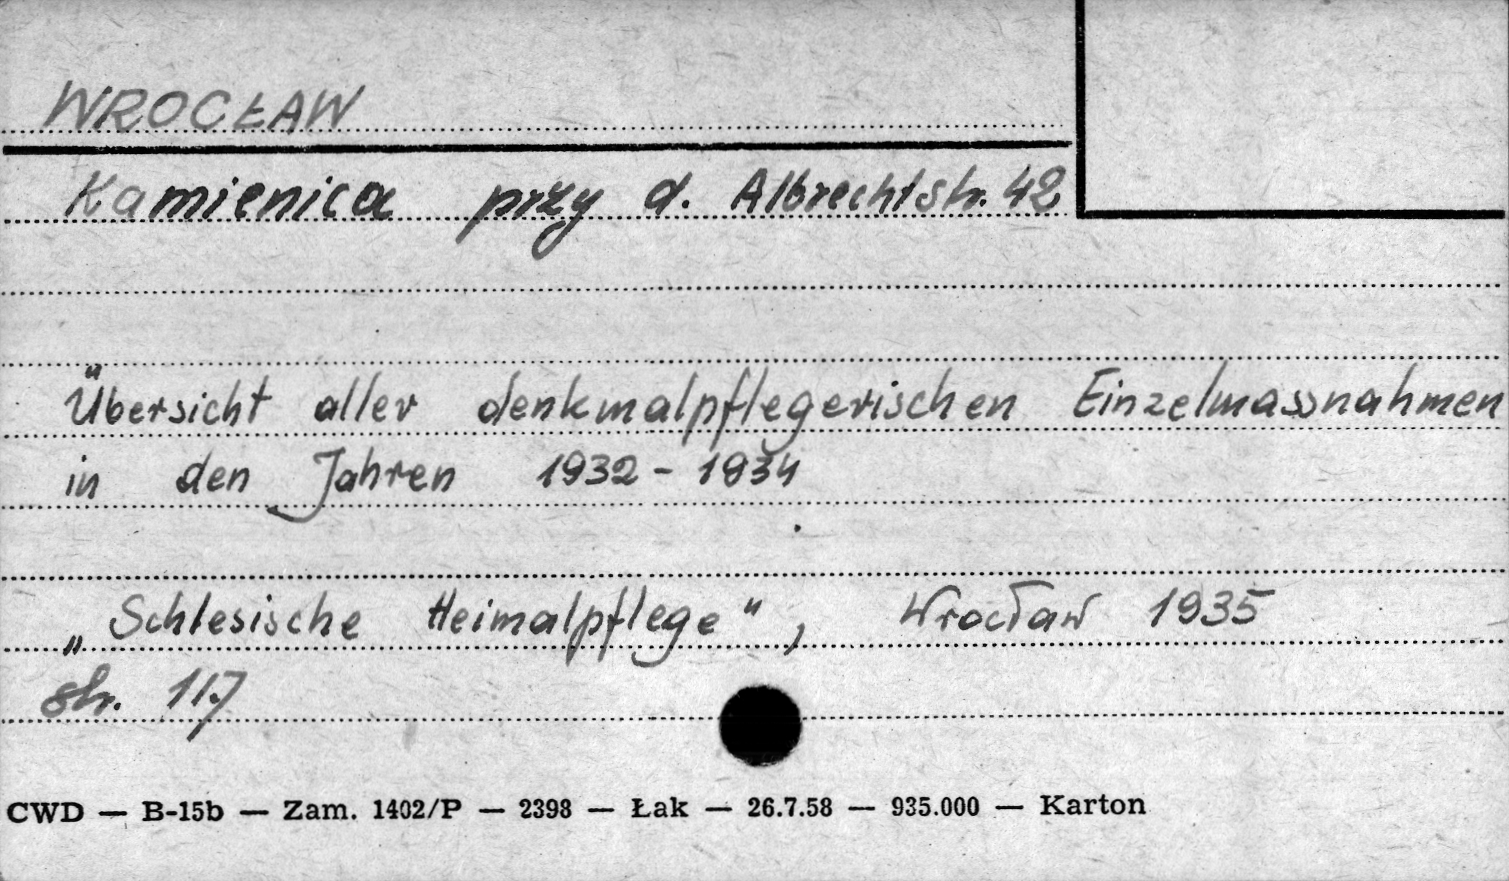 WROCŁAW
Kamienica przy d. Albrechtstr. 42
Übersicht aller denkmalpflegerischen Einzelmassnahmen
in den Jahren 1932 - 1934
„Schlesische Heimatpflege", Wrocław 1935
str. 117
CWD — B-15b — Zam. 1402/P — 2398 — Łak — 26.7.58 — 935.000 — Karton